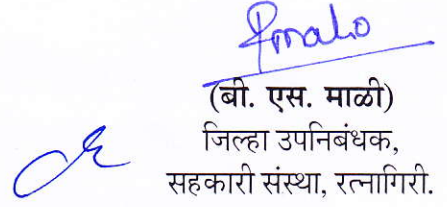 (बी. एस. माळी)
जिल्हा उपनिबंधक,
सहकारी संस्था, रत्नागिरी.